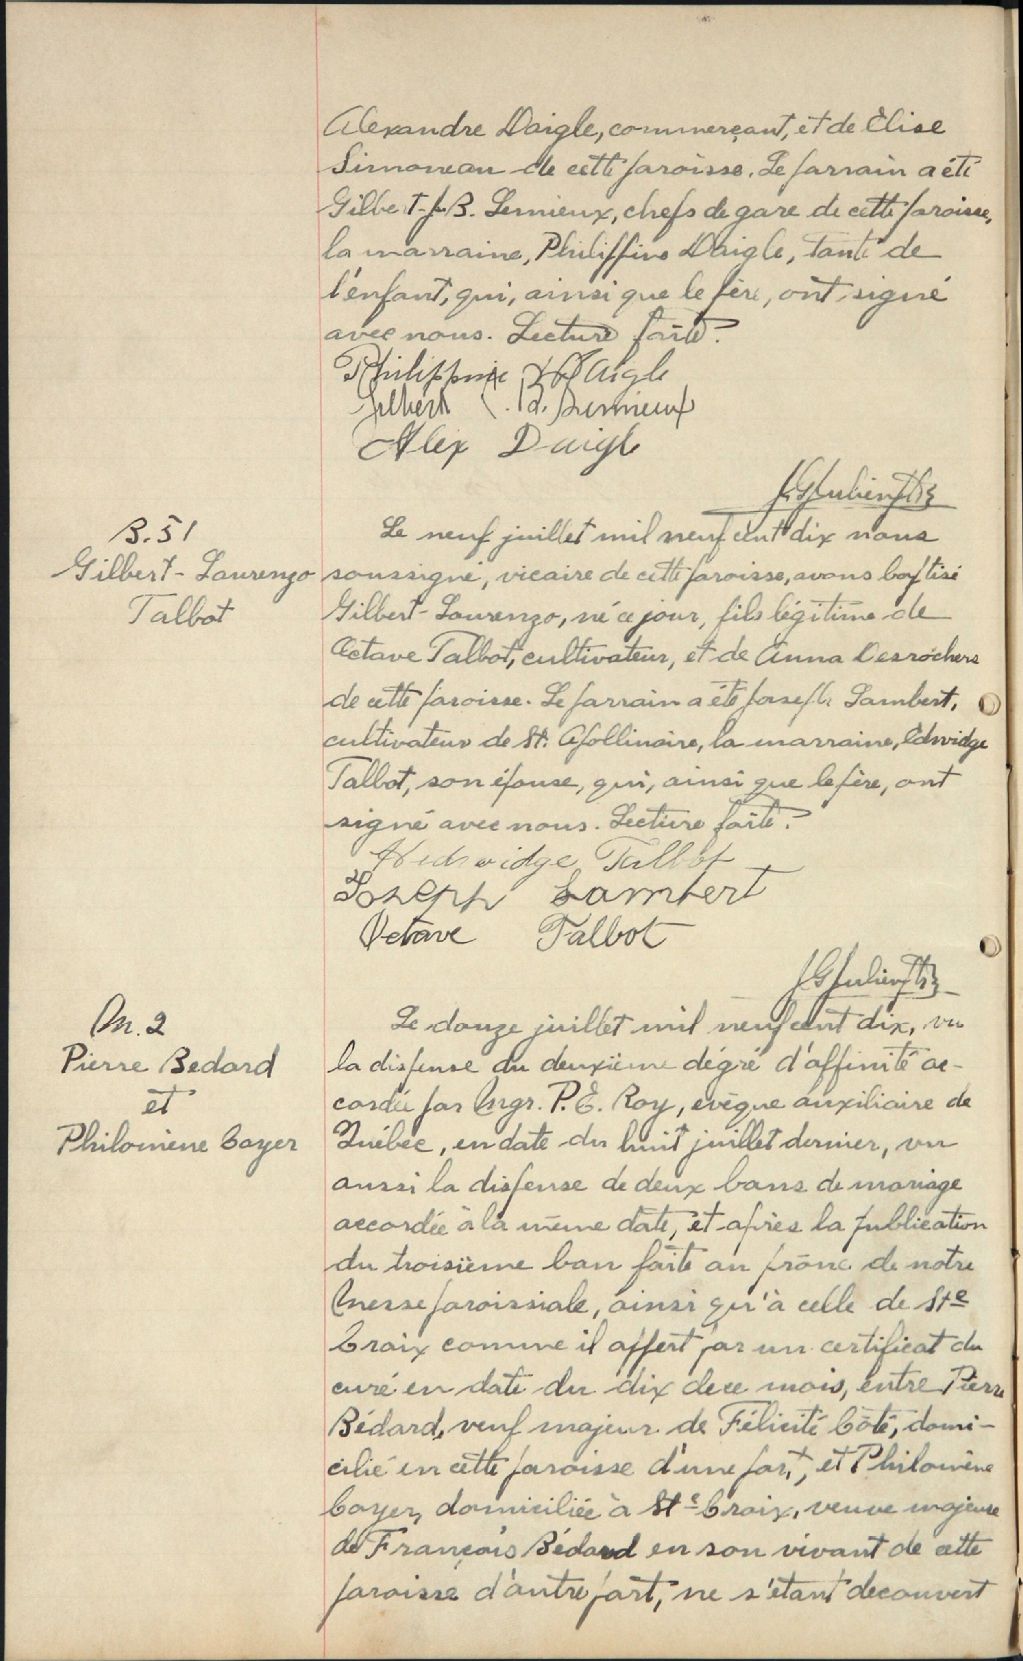 Alexandre Daigle, commerçant, et de Élise
Simoneau de cette paroisse. Le parrain a été
Gilbert-J-B. Lemieux, chefs de gare de cette paroisse,
la marraine, Philippine Daigle, tante de
l'enfant, qui, ainsi que le père, ont signé
avec nous. Lecture faite.
Philippine Daigle
Gilbert J. B. Lemieux
Alex Daigle
J.G. Julien Ptre
B. 51
Gilbert-Laurenzo
Talbot
Le neuf juillet mil neuf cent dix nous
soussigné, vicaire de cette paroisse, avons baptisé
Gilbert-Laurenzo, né ce jour, fils légitime de
Octave Talbot, cultivateur, et de Anna Desrochers
de cette paroisse. Le parrain a été Joseph Lambert,
cultivateur de St. Apollinaire, la marraine, Edwidge
Talbot, son épouse, qui, ainsi que le père, ont
signé avec nous. Lecture faite.
Hedwidge Talbot
Joseph Lambert
Octave Talbot
J G Julien Ptre
M. 2
Pierre Bedard
et
Philomène Boyer
Le douze juillet mil neuf cent dix, vu
la dispense du deuxième dégré d'affinité ac-
cordée par Mgr. P. E. Roy, evêque auxiliaire de
Québec, en date du huit juillet dernier, vu
aussi la dispense de deux bans de mariage
accordée à la même date, et après la publication
du troisième ban faite au prône de notre
Messe paroissiale, ainsi qu'à celle de Ste
Croix comme il appert par un certificat du
curé en date du dix de ce mois, entre Pierre
Bédard, veuf majeur de Félicité Côté, domi-
cilié en cette paroisse d'une part, et Philomène
Boyer, domiciliée à Ste Croix, veuve majeure
de François Bédard en son vivant de cette
paroisse d'autre part, ne s'étant decouvert